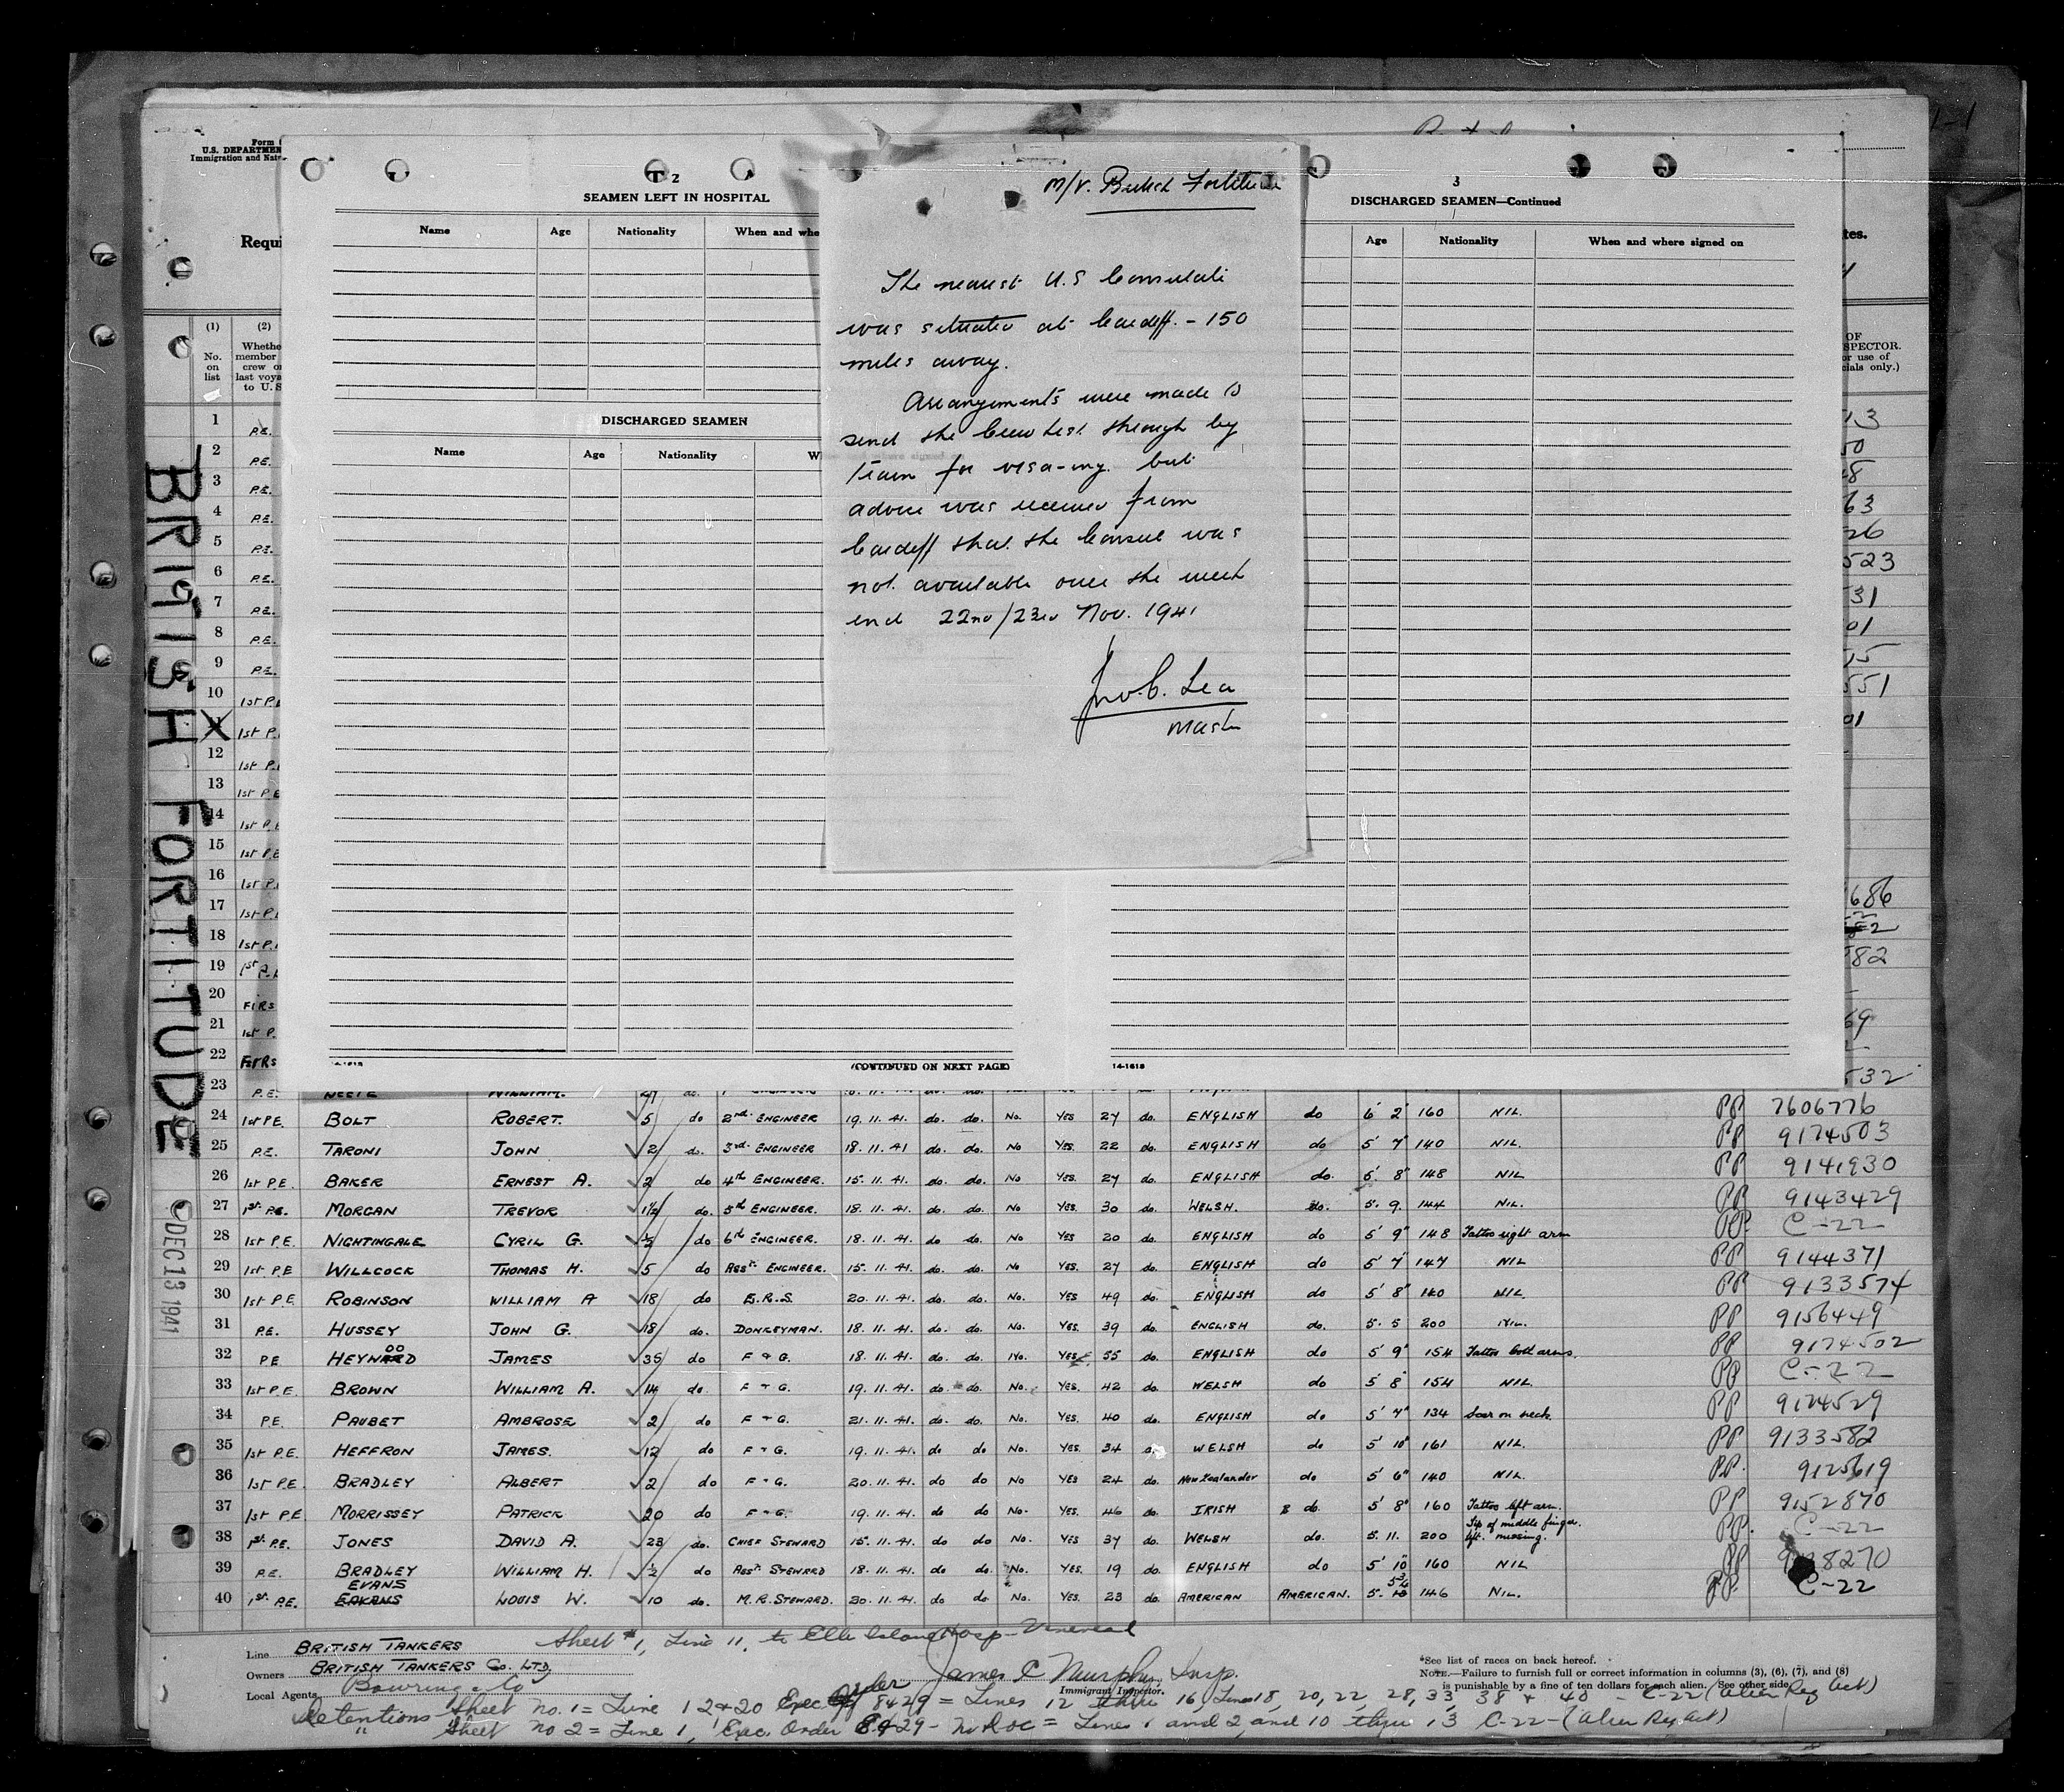 Form
U.S. DEPARTMEN
Immigration and Nat
Requi
T 2
SEAMEN LEFT IN HOSPITAL
Name Age Nationality When and whe
DISCHARGED SEAMEN
Name Age Nationality W
(CONTINUED ON NEXT PAGE)
M/V. British Fortitude
The nearest U.S Consulate
was situated at Cardiff. - 150
miles away.
Arrangements were made to
send the Crew List through by
train for visa-ing. but
advice was received from
Cardiff that the Consul was
not available over the week
end 22nd/23rd Nov. 1941
Jno. C. Lea
Master
3
DISCHARGED SEAMEN—Continued
Age Nationality When and where signed on
14-1618
tes.
OF
SPECTOR.
or use of
cials only.)
(1) (2)
No. on list
Whethe
member
crew o
last voya
to U. S
BRITISH FORTITUDE
DEC 13 1941
1 P.E.
2 P.E.
3 P.E.
4 P.E.
5 P.E.
6 P.E. 523
7 P.E. 31
8 P.E. 01
9 P.E. 15
10 1st P.E 551
11 1st P. 01
12 1st P.
13 1st P E
14 1st P.
15 1st P E
16 1st P.
17 1st P. 686
18 1st P.
19 1st P. 582
20 FIRS
21 1st P. 69
22 FIRS
23 P.E. NEELE WILLIAM. 532
24 1st P.E. BOLT ROBERT. 5 do 2nd ENGINEER 19.11.41. do. do. No. YES 27 do. ENGLISH do 6' 2" 160 NIL. PP 7606776
25 P.E. TARONI JOHN 2 do. 3rd ENGINEER 18.11.41 do. do. No YES. 22 do. ENGLISH do 5' 7" 140 NIL. PP 9174503
26 1st P.E. BAKER ERNEST A. 2 do 4th ENGINEER. 15.11.41. do. do. No YES. 27 do. ENGLISH do. 5' 8" 148 NIL. PP 9141930
27 1st P.E. MORGAN TREVOR 1½ do. 5th ENGINEER. 18.11.41. do. do. No YES. 30 do. WELSH. do. 5. 9. 144 NIL. PP 9143429
28 1st P.E. NIGHTINGALE CYRIL G. ½ do 6th ENGINEER. 18.11.41. do do. No YES 20 do. ENGLISH do 5' 9" 148 Tattoo right arm PP. C-22
29 1st P.E WILLCOCK THOMAS H. 5 do Asst. ENGINEER. 15.11.41. do. do. No YES. 27 do. ENGLISH do 5' 7" 147 NIL PP 9144371
30 1st P.E. ROBINSON WILLIAM A 18 do E.R.S. 20.11.41. do do. No. YES 49 do. ENGLISH do 5' 8" 140 NIL. PP 9133574
31 P.E. HUSSEY JOHN G. 18 do. DONKEYMAN. 18.11.41. do. do. No. YES. 39 do. ENGLISH do. 5. 5 200 NIL. PP 9156449
32 P.E HEYWOOD JAMES 35 do F & G. 18.11.41. do. do. No. YES. 55 do. ENGLISH do 5' 9" 154 Tattoo both arms. PP 9174502
33 1st P.E. BROWN WILLIAM A. 14 do. F + G. 19.11.41. do. do. No. YES. 42 do. WELSH do 5' 8" 154 NIL. PP C-22
34 P.E. PAUBET AMBROSE 2 do F + G. 21.11.41. do. do. No. YES. 40 do. ENGLISH do 5' 7" 134 Scar on neck. PP 9174529
35 1st P.E. HEFFRON JAMES. 12 do F + G. 19.11.41. do do No. YES. 34 do. WELSH do 5' 10" 161 NIL. PP 9133582
36 1st P.E. BRADLEY ALBERT 2 do F + G. 20.11.41. do do No YES 24 do. New Zealander do 5' 6" 140 NIL. PP. 9125619
37 1st P.E MORRISSEY PATRICK 20 do F + G. 19.11.41. do do No. YES. 46 do. IRISH do. 5' 8" 160 Tattoo left arm. PP 9152870
38 1st. P.E. JONES DAVID A. 23 do. CHIEF STEWARD 15.11.41. do do No. YES 37 do. WELSH do. 5. 11. 200 Tip of middle finger left. missing. PP. C-22
39 P.E. BRADLEY WILLIAM H. ½ do Asst. STEWARD 18.11.41. do do. No. YES. 19 do. ENGLISH do 5' 10" 160 NIL PP 8270
40 1st. P.E. EVANS LOUIS W. 10 do. M.R. STEWARD. 20.11.41. do do No. YES. 23 do. AMERICAN AMERICAN. 5. 146 NIL. P.P. C-22
Line BRITISH TANKERS Sheet #1, Line 11, to Ellis Island Hosp - Venereal
Owners BRITISH TANKERS Co. LTD.
Local Agents Bowring & Co
James C Murphy Insp.
Immigrant Inspector.
*See list of races on back hereof.
NOTE.—Failure to furnish full or correct information in columns (3), (6), (7), and (8)
is punishable by a fine of ten dollars for each alien. See other side.
Detentions Sheet No. 1 = Line 1 2 & 20 Exec Order 8429 = Lines 12 thru 16, Lines 18, 20, 22, 28, 33, 38 & 40 - C-22 (Alien Reg Act)
" Sheet No 2 = Line 1, Exec. Order 8429 - No Doc = Lines 1 and 2, and 10 thru 13 C-22 - (Alien Reg Act)